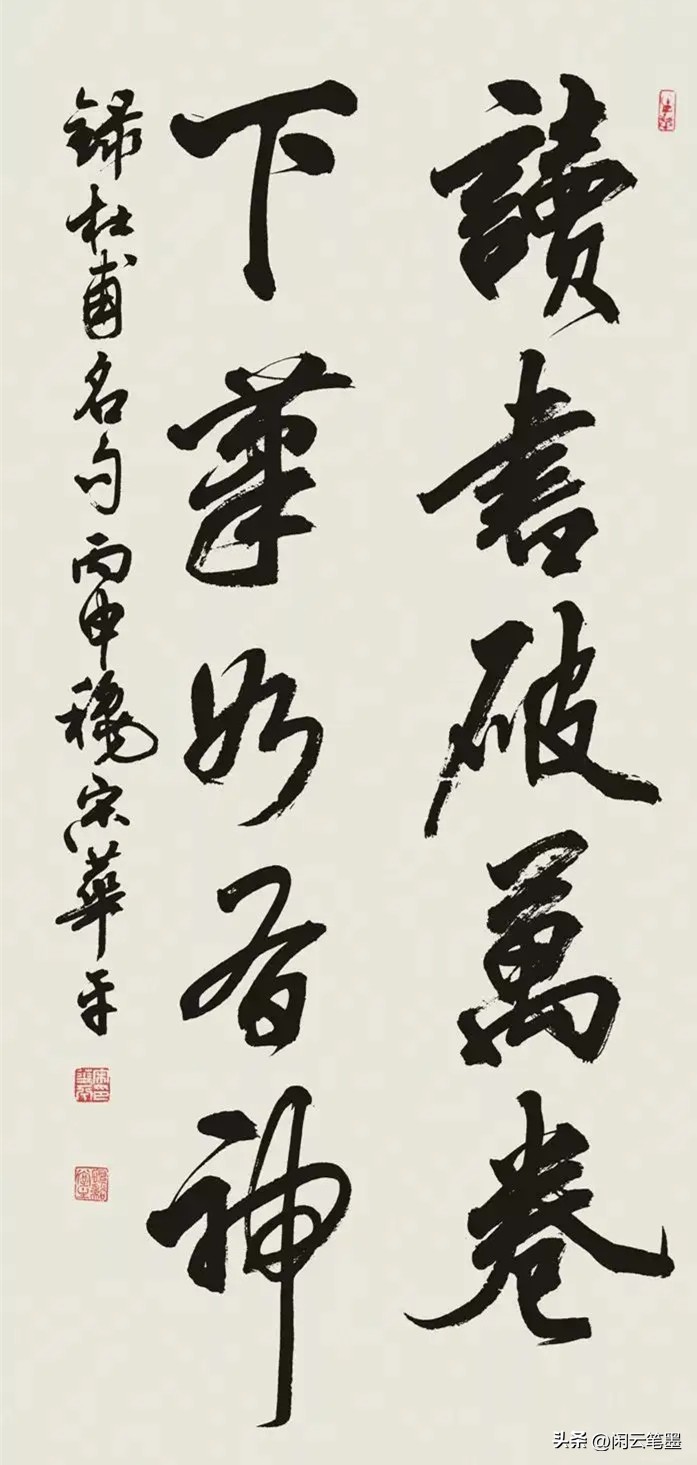 讀書破萬卷
下筆如有神
錄杜甫名句丙申穐宋華平
头条 @闲云笔墨